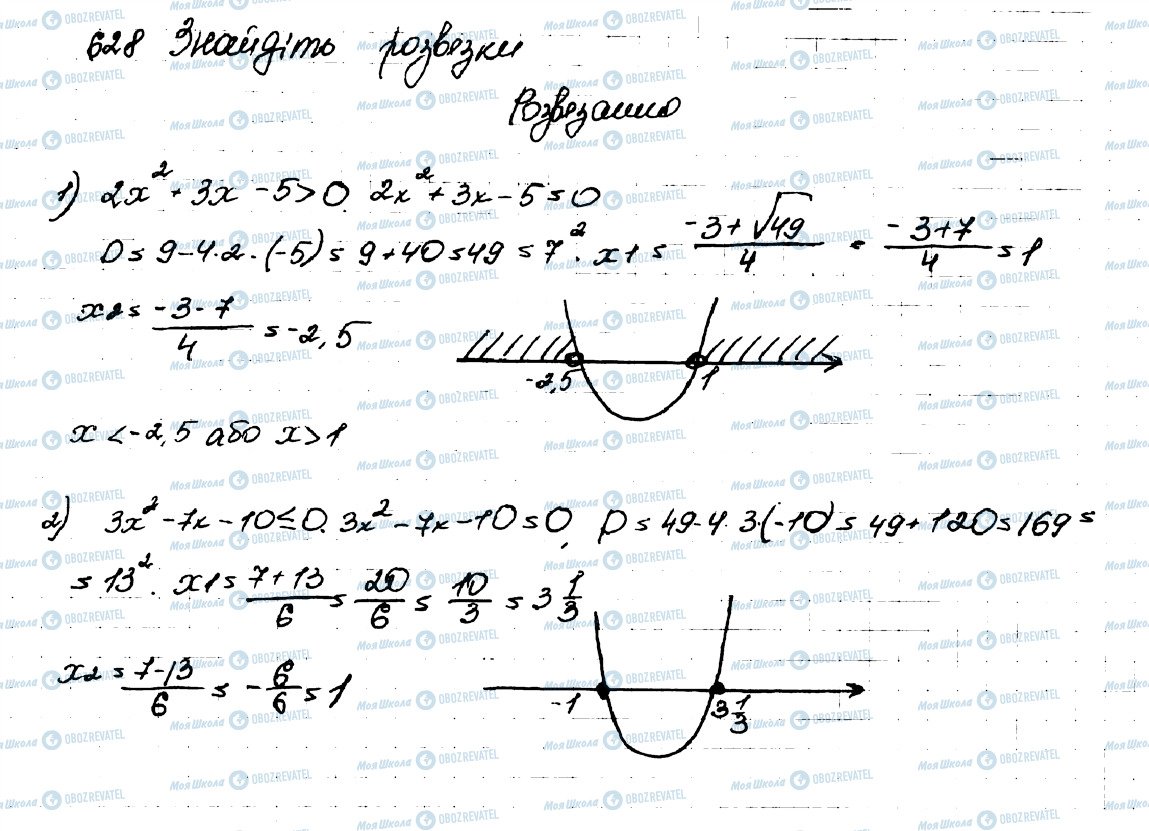 628 Знайдіть розвязки
Розвязання
1) 2x² + 3x - 5 > 0. 2x² + 3x - 5 = 0
D = 9 - 4·2·(-5) = 9 + 40 = 49 = 7². x1 = (-3+√49)/4 = (-3+7)/4 = 1
x2 = (-3-7)/4 = -2,5
-2,5 1
x < -2,5 або x > 1
2) 3x² - 7x - 10 ≤ 0. 3x² - 7x - 10 = 0, D = 49 - 4·3·(-10) = 49 + 120 = 169 =
= 13². x1 = (7+13)/6 = 20/6 = 10/3 = 3 1/3
x2 = (7-13)/6 = -6/6 = 1
-1 3 1/3
Моя Школа OBOZREVATEL